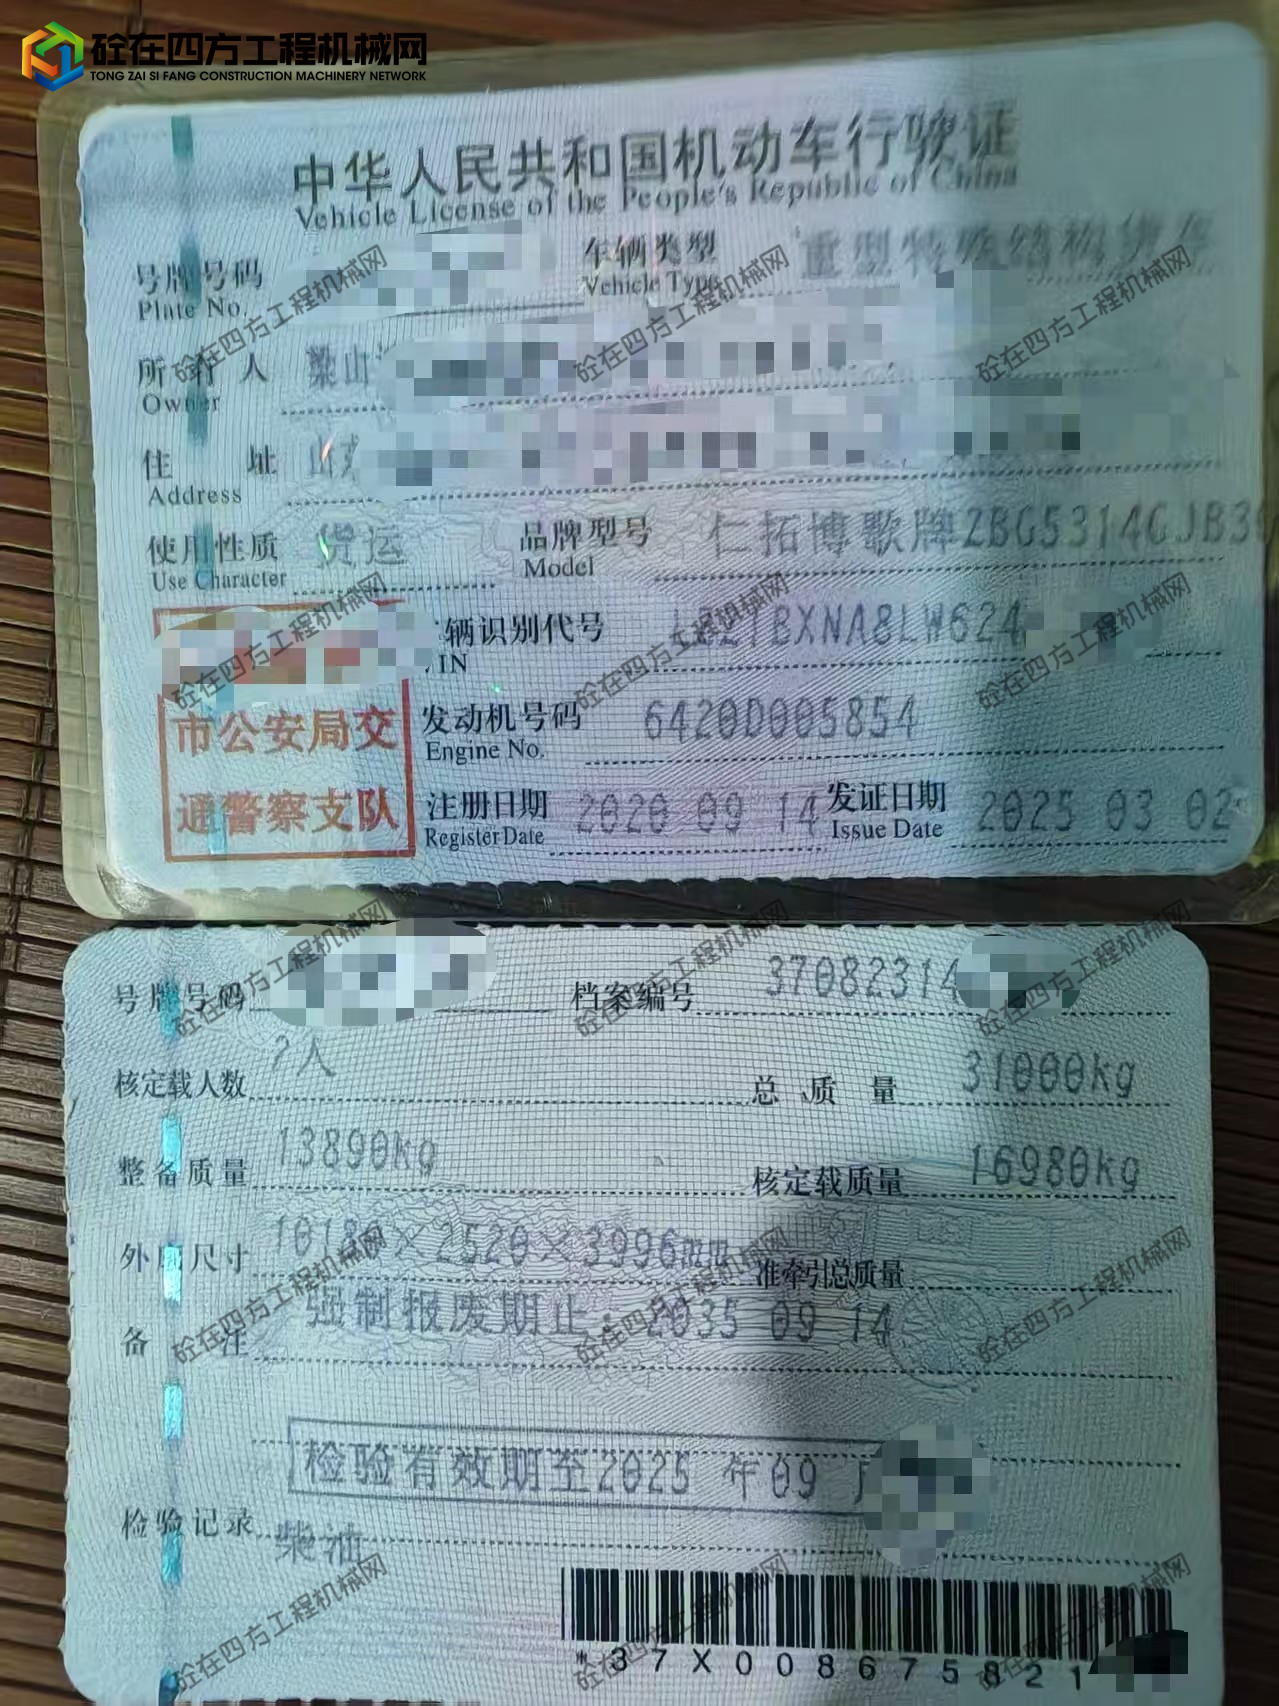 砼在四方工程机械网
TONG ZAI SI FANG CONSTRUCTION MACHINERY NETWORK
中华人民共和国机动车行驶证
Vehicle License of the People's Republic of China
号牌号码 车辆类型 重型特殊结构货车
Plate No. Vehicle Type
所有人 梁山
Owner
住址 山东
Address
使用性质 货运 品牌型号 仁拓博歌牌ZBG5314GJB3
Use Character Model
辆识别代号 BXNA8LW624
VIN
市公安局交
通警察支队
发动机号码 6420D005854
Engine No.
注册日期 2020 09 14 发证日期 2025 03 02
Register Date Issue Date
号牌号码 档案编号 37082314
核定载人数 人 总质量 31000kg
整备质量 13890kg 核定载质量 16980kg
外廓尺寸 10180×2520×3996mm 准牵引总质量
备注 强制报废期止：2035 09 14
检验有效期至2025 年09 月
检验记录 柴油
*37X008675821
砼在四方工程机械网